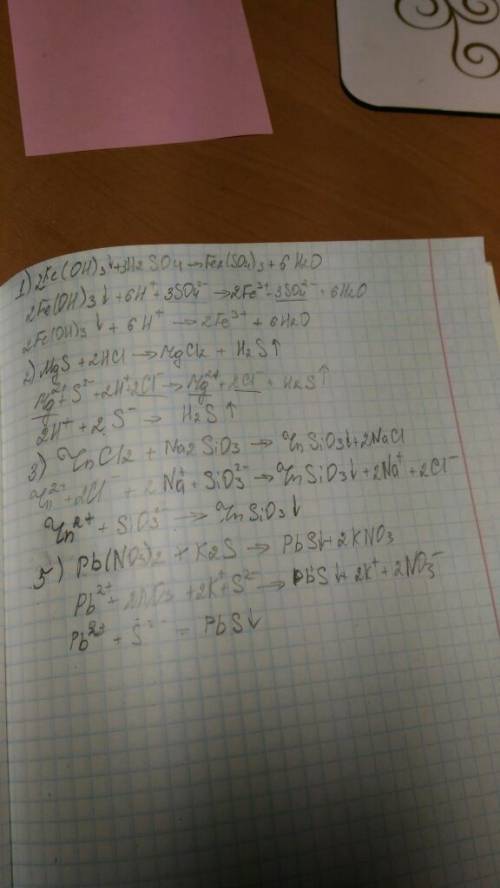 1) 2Fe(OH)3↓ + 3H2SO4 → Fe2(SO4)3 + 6H2O
2Fe(OH)3↓ + 6H⁺ + 3SO4²⁻ → 2Fe³⁺ + 3SO4²⁻ + 6H2O
2Fe(OH)3↓ + 6H⁺ → 2Fe³⁺ + 6H2O
2) MgS + 2HCl → MgCl2 + H2S↑
Mg²⁺ + S²⁻ + 2H⁺ + 2Cl⁻ → Mg²⁺ + 2Cl⁻ + H2S↑
2H⁺ + 2S⁻ → H2S↑
3) ZnCl2 + Na2SiO3 → ZnSiO3↓ + 2NaCl
Zn²⁺ + 2Cl⁻ + 2Na⁺ + SiO3²⁻ → ZnSiO3↓ + 2Na⁺ + 2Cl⁻
Zn²⁺ + SiO3²⁻ → ZnSiO3↓
5) Pb(NO3)2 + K2S → PbS↓ + 2KNO3
Pb²⁺ + 2NO3 + 2K⁺ + S²⁻ → PbS↓ + 2K⁺ + 2NO3⁻
Pb²⁺ + S²⁻ = PbS↓